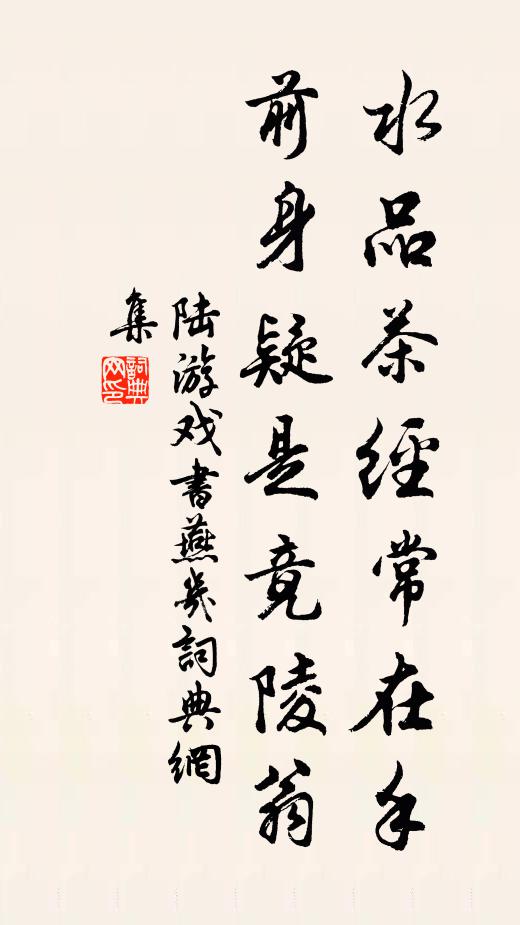 水品茶經常在手
前身疑是竟陵翁
陆游戏書燕几詞典網
集
詞典網印